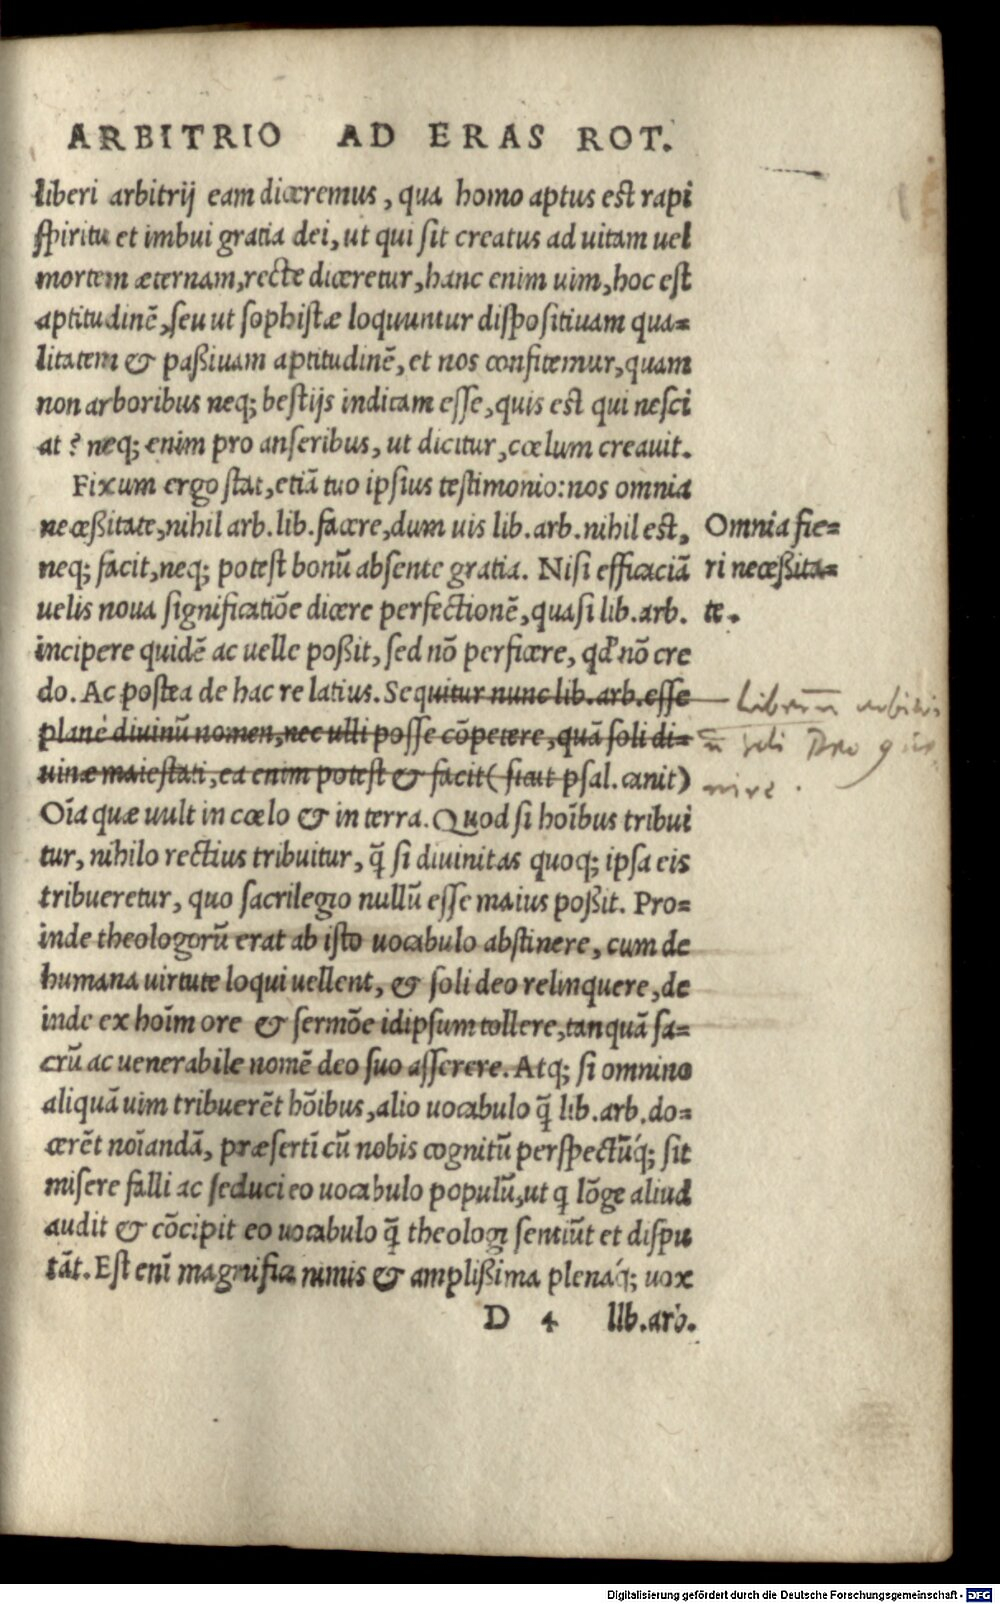 ARBITRIO AD ERAS ROT.
liberi arbitrij eam diceremus, qua homo aptus est rapi
spiritu et imbui gratia dei, ut qui sit creatus ad uitam uel
mortem æternam, recte diceretur, hanc enim uim, hoc est
aptitudinē, seu ut sophistæ loquuntur dispositiuam qua=
litatem & paßiuam aptitudinē, et nos confitemur, quam
non arboribus neq; bestijs inditam esse, quis est qui nesci
at? neq; enim pro anseribus, ut dicitur, cœlum creauit.
Fixum ergo stat, etiā tuo ipsius testimonio: nos omnia
neceßitate, nihil arb. lib. facere, dum uis lib. arb. nihil est,
neq; facit, neq; potest bonū absente gratia. Nisi efficaciā
uelis noua significatiōe dicere perfectionē, quasi lib. arb.
incipere quidē ac uelle poßit, sed nō perficere, qđ nō cre
do. Ac postea de hac re latius. Sequitur nunc lib. arb. esse
planè diuinū nomen, nec ulli posse cōpetere, quā soli di=
uinæ maiestati, ea enim potest & facit (sicut psal. canit)
Oīa quæ uult in cœlo & in terra. Quod si hoībus tribui
tur, nihilo rectius tribuitur, q̄ si diuinitas quoq; ipsa eis
tribueretur, quo sacrilegio nullū esse maius poßit. Pro=
inde theologorū erat ab isto uocabulo abstinere, cum de
humana uirtute loqui uellent, & soli deo relinquere, de
inde ex hoīm ore & sermōe idipsum tollere, tanquā sa=
crū ac uenerabile nomē deo suo asserere. Atq; si omnino
aliquā uim tribuerēt hōibus, alio uocabulo q̄ lib. arb. do=
cerēt noīandā, præsertī cū nobis cognitū perspectūq́; sit
misere falli ac seduci eo uocabulo populū, ut q lōge aliud
audit & cōcipit eo uocabulo q̄ theologi sentiūt et dispu
tāt. Est enī magnifica nimis & amplißima plenaq́; uox
D 4 lib. arb.
Omnia fie=
ri neceßita=
te.
Liberū arbitri
ū soli Deo
nire.
Digitalisierung gefördert durch die Deutsche Forschungsgemeinschaft - DFG